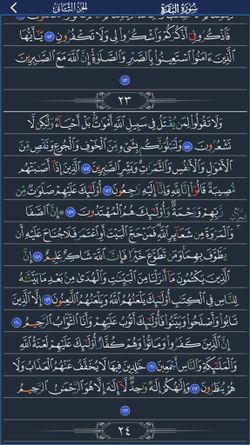 سُورَةُ البَقَرَةِ الجُزءُ الثَّانِي
فَاذْكُرُونِي أَذْكُرْكُمْ وَاشْكُرُوا لِي وَلَا تَكْفُرُونِ ١٥٢ يَٰٓأَيُّهَا
الَّذِينَ ءَامَنُوا اسْتَعِينُوا بِالصَّبْرِ وَالصَّلَوٰةِ إِنَّ اللَّهَ مَعَ الصَّٰبِرِينَ
١٥٣
٢٣
وَلَا تَقُولُوا لِمَن يُقْتَلُ فِي سَبِيلِ اللَّهِ أَمْوَٰتٌ بَلْ أَحْيَآءٌ وَلَٰكِن لَّا
تَشْعُرُونَ ١٥٤ وَلَنَبْلُوَنَّكُم بِشَيْءٍ مِّنَ الْخَوْفِ وَالْجُوعِ وَنَقْصٍ مِّنَ
الْأَمْوَٰلِ وَالْأَنفُسِ وَالثَّمَرَٰتِ وَبَشِّرِ الصَّٰبِرِينَ ١٥٥ الَّذِينَ إِذَآ أَصَٰبَتْهُم
مُّصِيبَةٌ قَالُوٓا إِنَّا لِلَّهِ وَإِنَّآ إِلَيْهِ رَٰجِعُونَ ١٥٦ أُولَٰٓئِكَ عَلَيْهِمْ صَلَوَٰتٌ مِّن
رَّبِّهِمْ وَرَحْمَةٌ وَأُولَٰٓئِكَ هُمُ الْمُهْتَدُونَ ١٥٧ ۞ إِنَّ الصَّفَا
وَالْمَرْوَةَ مِن شَعَآئِرِ اللَّهِ فَمَنْ حَجَّ الْبَيْتَ أَوِ اعْتَمَرَ فَلَا جُنَاحَ عَلَيْهِ أَن
يَطَّوَّفَ بِهِمَا وَمَن تَطَوَّعَ خَيْرًا فَإِنَّ اللَّهَ شَاكِرٌ عَلِيمٌ ١٥٨ إِنَّ
الَّذِينَ يَكْتُمُونَ مَآ أَنزَلْنَا مِنَ الْبَيِّنَٰتِ وَالْهُدَىٰ مِن بَعْدِ مَا بَيَّنَّٰهُ
لِلنَّاسِ فِي الْكِتَٰبِ أُولَٰٓئِكَ يَلْعَنُهُمُ اللَّهُ وَيَلْعَنُهُمُ اللَّٰعِنُونَ ١٥٩ إِلَّا الَّذِينَ
تَابُوا وَأَصْلَحُوا وَبَيَّنُوا فَأُولَٰٓئِكَ أَتُوبُ عَلَيْهِمْ وَأَنَا التَّوَّابُ الرَّحِيمُ ١٦٠
إِنَّ الَّذِينَ كَفَرُوا وَمَاتُوا وَهُمْ كُفَّارٌ أُولَٰٓئِكَ عَلَيْهِمْ لَعْنَةُ اللَّهِ
وَالْمَلَٰٓئِكَةِ وَالنَّاسِ أَجْمَعِينَ ١٦١ خَٰلِدِينَ فِيهَا لَا يُخَفَّفُ عَنْهُمُ الْعَذَابُ وَلَا
هُمْ يُنظَرُونَ ١٦٢ وَإِلَٰهُكُمْ إِلَٰهٌ وَٰحِدٌ لَّآ إِلَٰهَ إِلَّا هُوَ الرَّحْمَٰنُ الرَّحِيمُ
١٦٣
٢٤